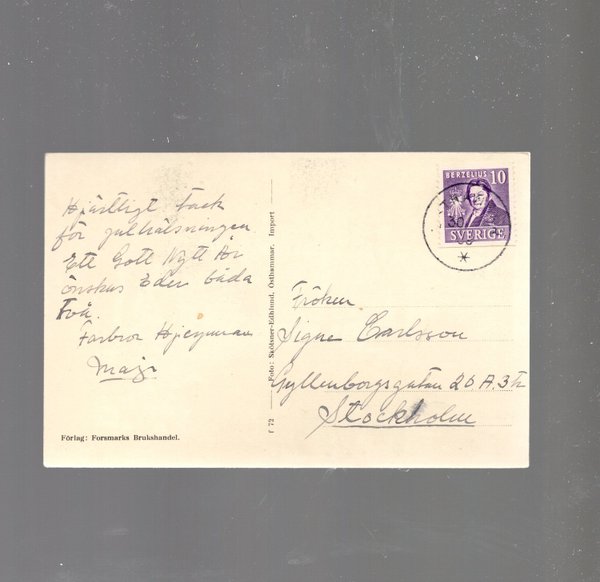 Hjärtligt tack
för julhälsningen
Ett Gott Nytt År
önskas Eder båda
Två.
Farbror
Maja
Förlag: Forsmarks Brukshandel.
f 72 — Foto: Skölsner-Edhlund, Östhammar. Import —
BERZELIUS 10
SVERIGE
30
Fröken
Signe Carlsson
Gyllenborgsgatan 26 A. 3 tr
Stockholm